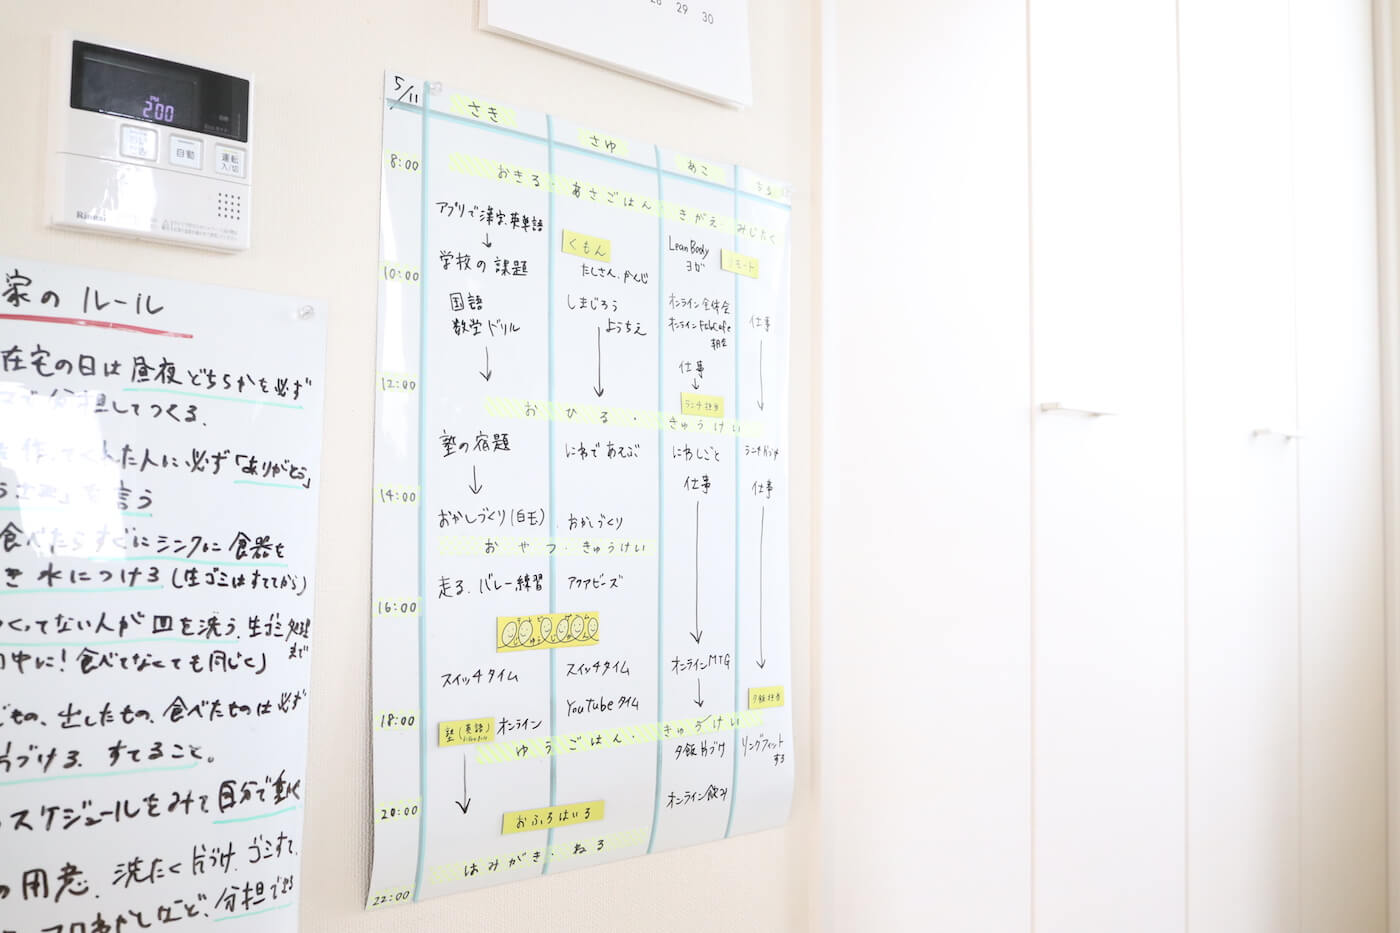 28 29 30
PM
200
自動
運転
入/切
Rinnai
家のルール
在宅の日は昼夜どちらかを必ず
分担してつくる.
を作ってくれた人に必ず「ありがとう」
を言う
食べたらすぐにシンクに食器を
水につける(生ゴミはすててから)
つくってない人が皿を洗う.生ゴミ処理
まで
中に!食べてなくても同じく)
出したもの、食べたものは必ず
片づける.すてること。
スケジュールをみて自分で動く
の用意.洗たく片づけ.ゴミすて.
など、分担できる
5/11
さき
さゆ
あこ
8:00
10:00
12:00
14:00
16:00
18:00
20:00
22:00
おきる・あさごはん・きがえ・みじたく
アプリで漢字.英単語
学校の課題
国語
数学ドリル
くもん
たしさん.かんじ
しまじろう
ようちえ
Lean Body
ヨガ
オンライン全体会
オンラインFabCafe
朝会
仕事
ランチ担当
リモート
仕事
おひる・きゅうけい
塾の宿題
にわであそぶ
にわしごと
仕事
ランチ片づけ
仕事
おかしづくり(白玉)
おかしづくり
おやつ・きゅうけい
走る.バレー練習
アクアビーズ
じゆうじかん
スイッチタイム
スイッチタイム
Youtubeタイム
オンラインMTG
夕飯担当
塾(英語)
オンライン
ゆうごはん・きゅうけい
夕飯片づけ
リングフィット
する
オンライン飲み
おふろはいる
はみがき・ねる